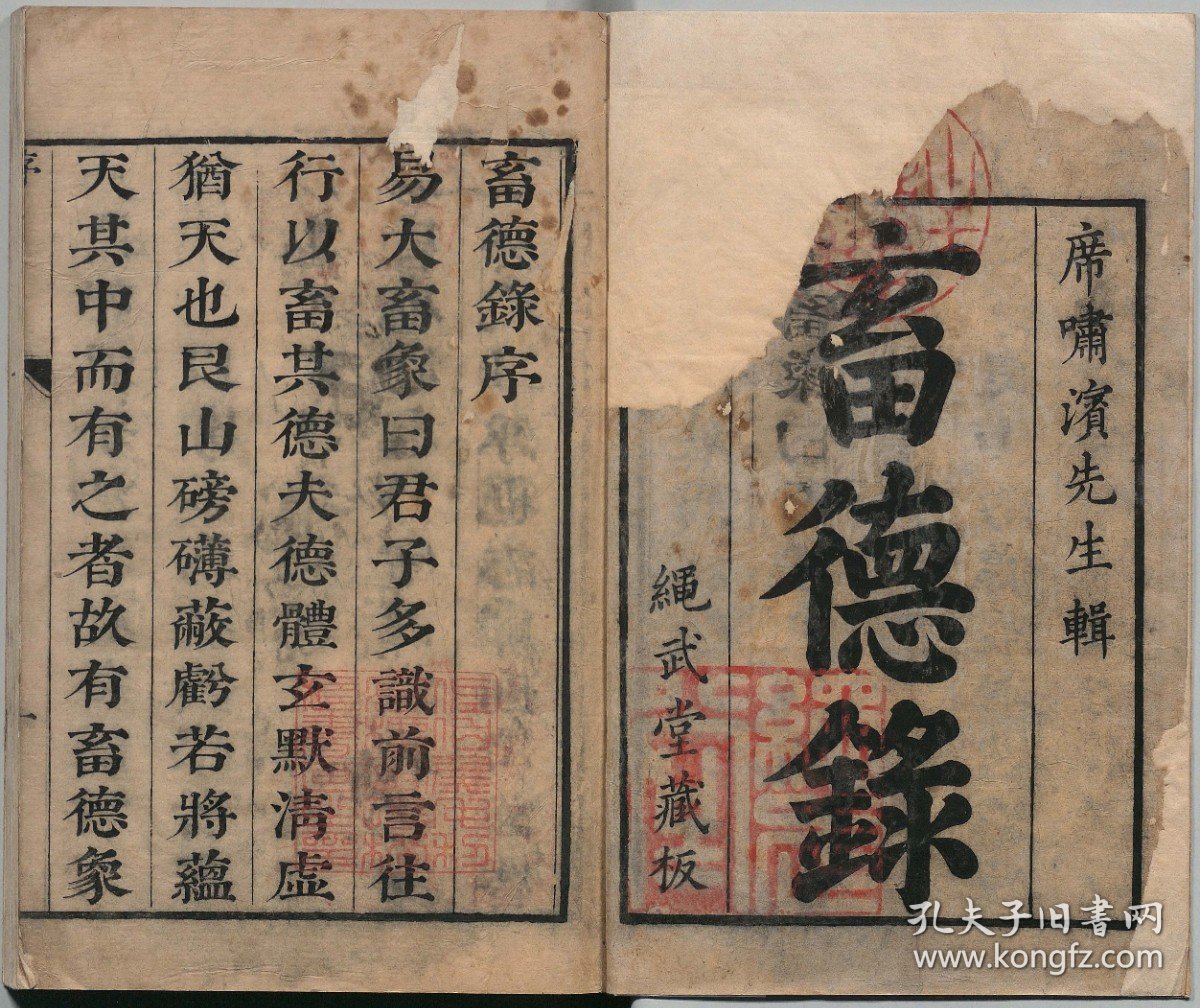 席嘯濱先生輯
畜德錄
繩武堂藏板
畜德錄序
易大畜象曰君子多識前言往
行以畜其德夫德體玄默淸虛
猶天也艮山磅礴蔽虧若將蘊
天其中而有之者故有畜德象
序
一
孔夫子旧书网
www.kongfz.com